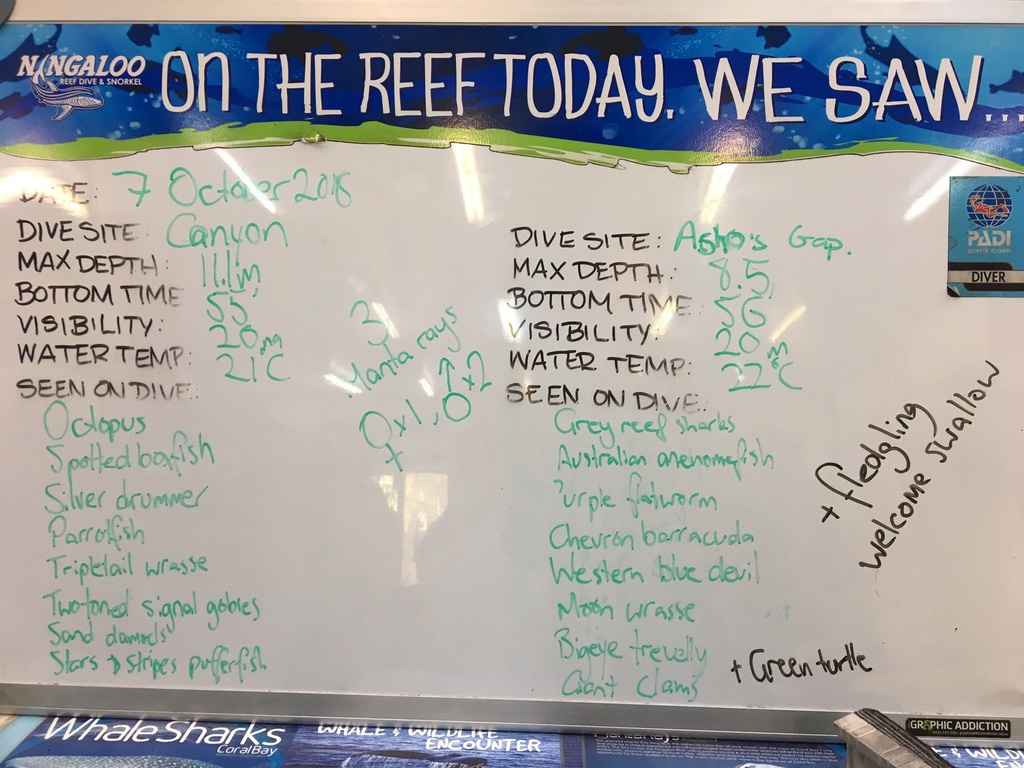 NINGALOO
REEF DIVE & SNORKEL
ON THE REEF TODAY, WE SAW...
DATE: 7 October 2018
DIVE SITE: Canyon
MAX DEPTH: 11.1m
BOTTOM TIME 55
VISIBILITY: 20m
WATER TEMP: 21°C
SEEN ON DIVE:
Octopus
Spotted boxfish
Silver drummer
Parrotfish
Tripletail wrasse
Two-toned signal gobies
Sand damsels
Stars & stripes pufferfish
3
Manta rays
♀x1, ♂x2
DIVE SITE: Asho's Gap.
MAX DEPTH: 8.5
BOTTOM TIME 56
VISIBILITY: 20m
WATER TEMP: 22°C
SEEN ON DIVE:
Grey reef sharks
Australian anenomefish
Purple flatworm
Chevron barracuda
Western blue devil
Moon wrasse
Bigeye trevelly
Giant clams
+ Green turtle
+ fledgling
welcome swallow
PADI
padi.com
DIVER
Whale Sharks
Coral Bay
WHALE & WILDLIFE
ENCOUNTER
GRAPHIC ADDICTION